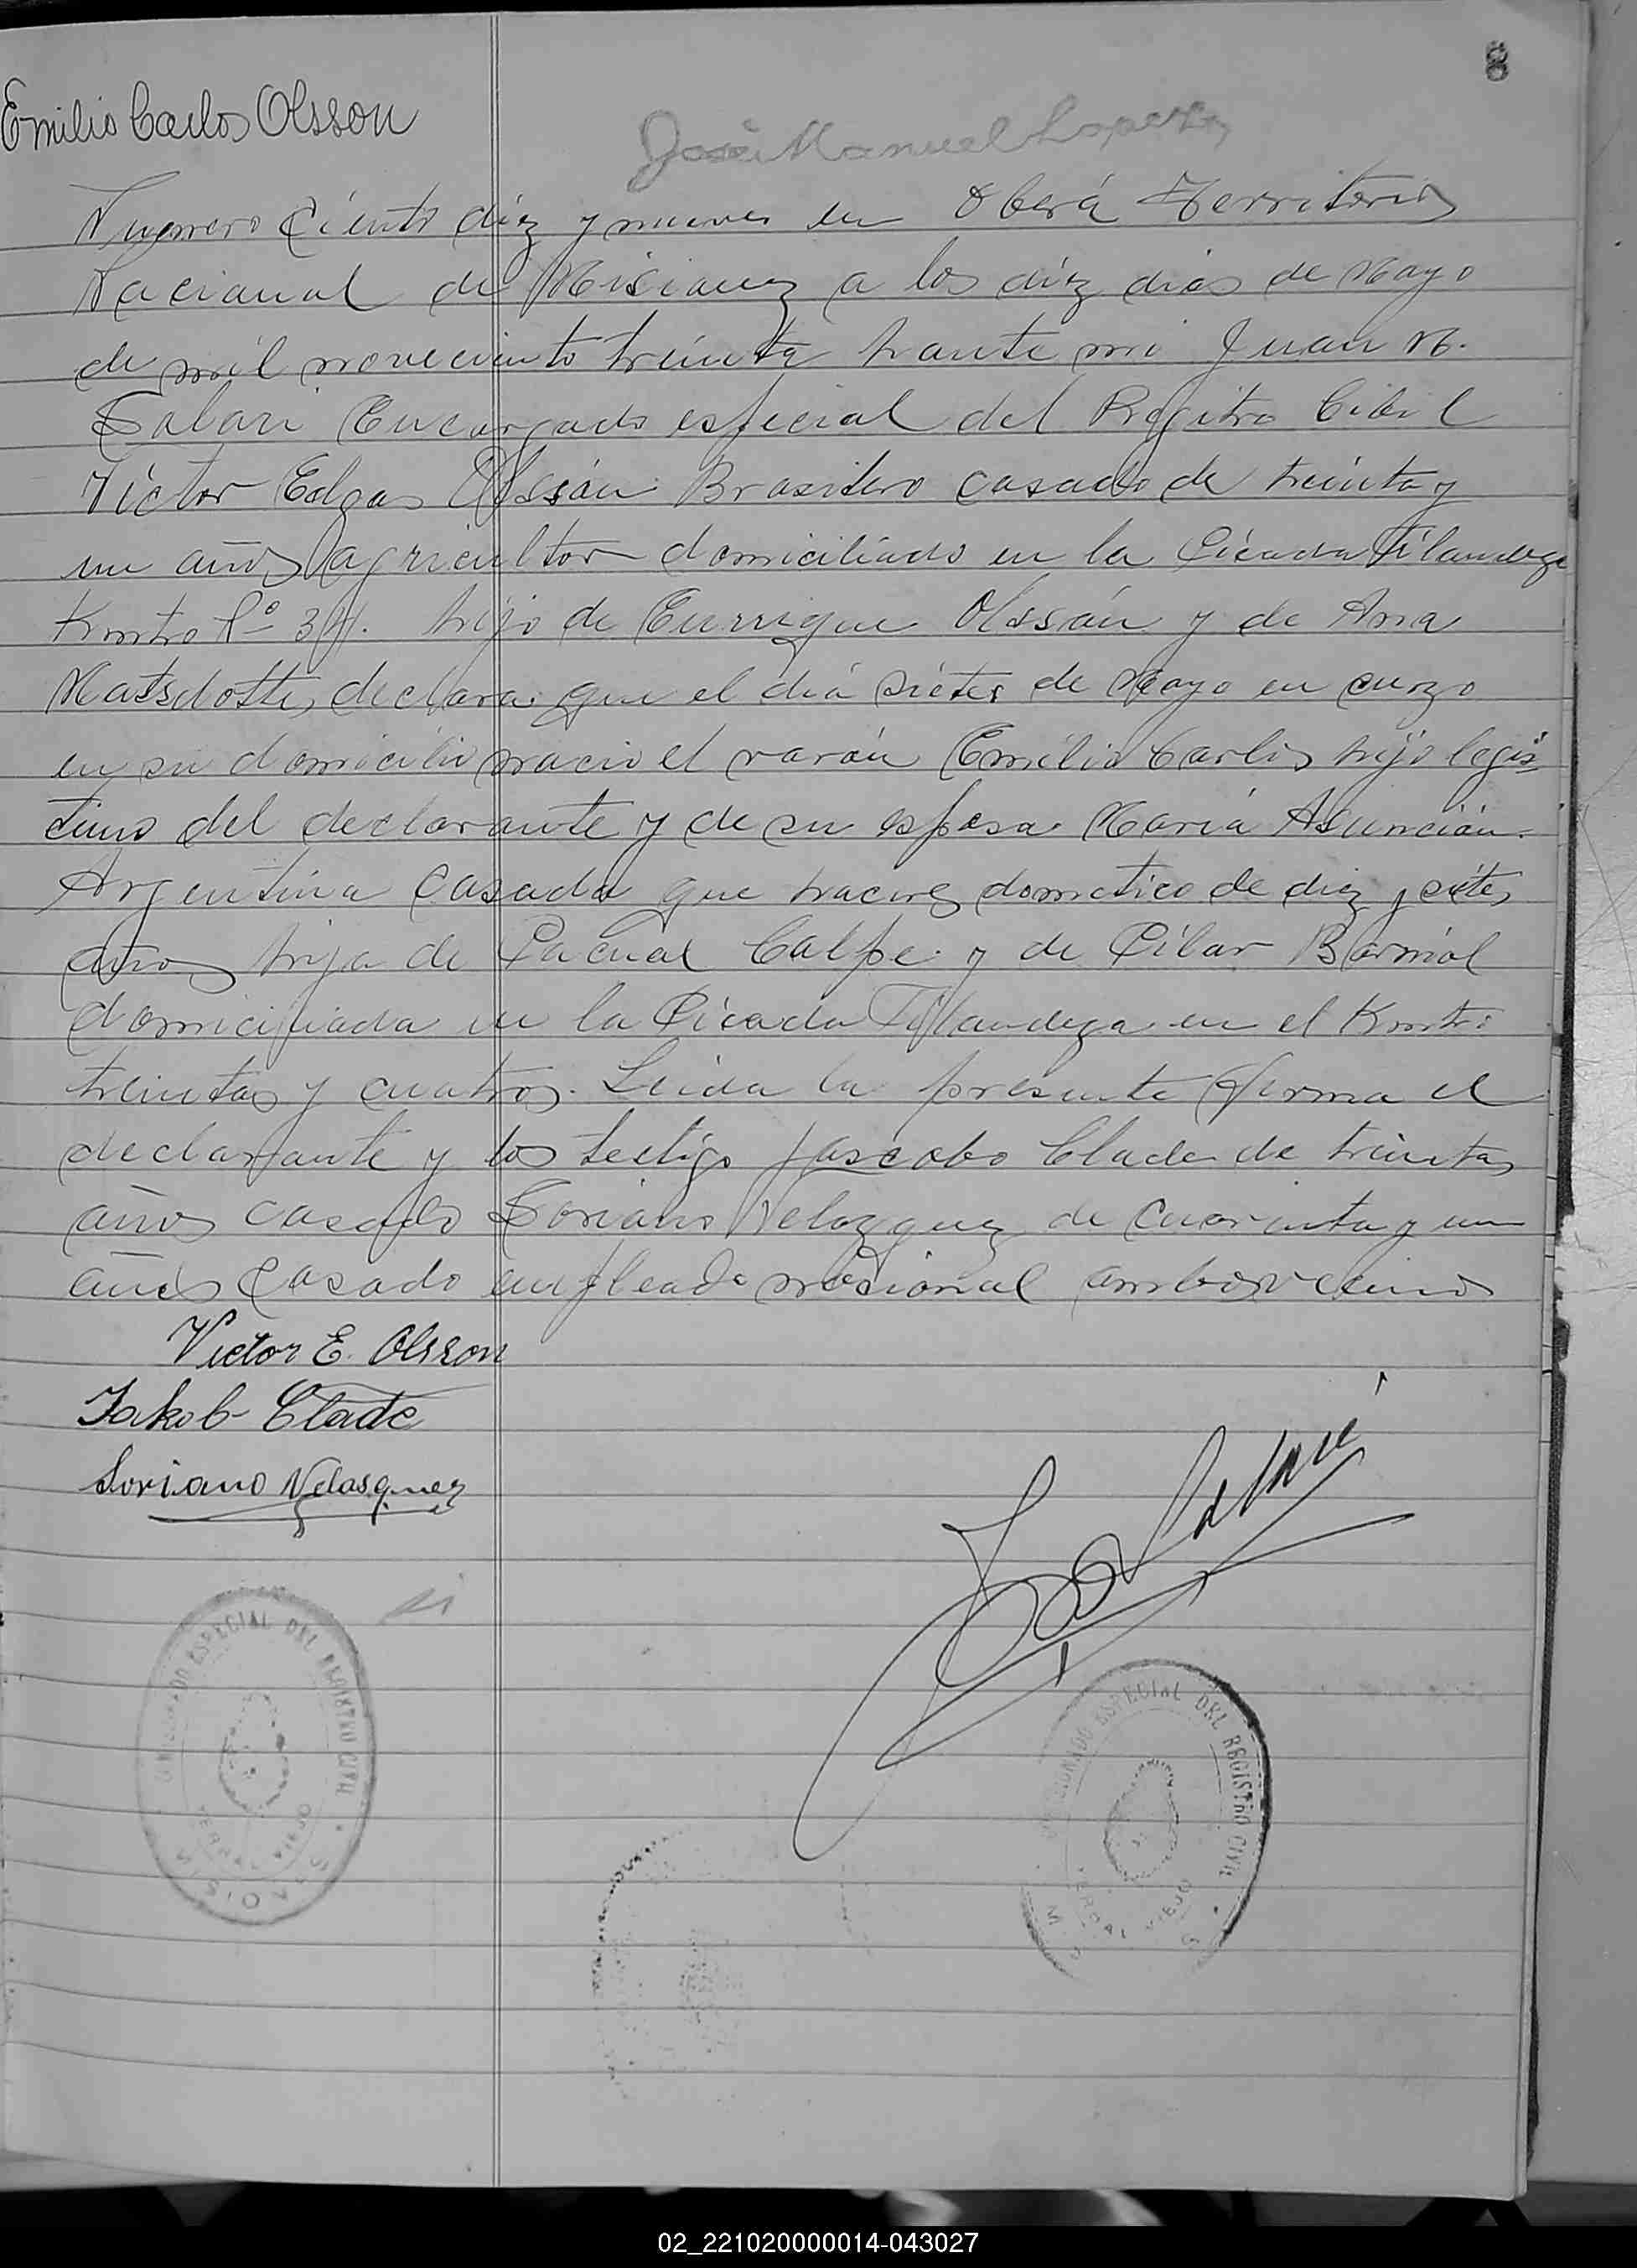 8
Emilio Carlos Olsson
José Manuel Lopez
Numero Ciento diez y nueve en Oberá Territorio
Nacional de Misiones a los diez dias de Mayo
de mil noveciento treinta hante mi Juan M.
Sabari Encargado especial del Regitro Cibil
Victor Edgar Olssón Brasilero casado de treinta y
un años agricultor domiciliado en la Picada Filandeza
Kmtro Nº 34. hijo de Enrrique Olssón y de Ana
Matsdotter, declara que el dia siete de Mayo en curzo
en su domicilio nacio el varón Emilio Carlos hijo legi
timo del declarante y de su esposa María Asunción
Argentina Casada que haceres dometico de diez y siete
años hija de Pacual Calpe y de Pilar
domiciliada en la Picada Filandeza en el Kmtro
treinta y cuatro. Leida la presente firma el
declarante y los testigo Jascobo Clade de treinta
años casado Soriano Velazquez de Cuarenta y un
años Casado empleado nacional ambos vecinos
Victor E. Olsson
Jakob Clade
Soriano Velasquez
ESPECIAL DEL REGISTRO CIVIL
YERBAL VIEJO
MISIONES
ESPECIAL DEL REGISTRO CIVIL
YERBAL VIEJO
02_221020000014-043027